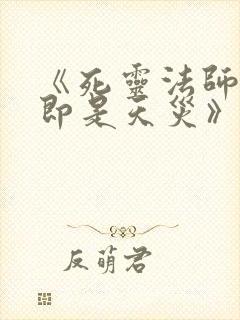 《死靈法師
即是天災》
反萌君